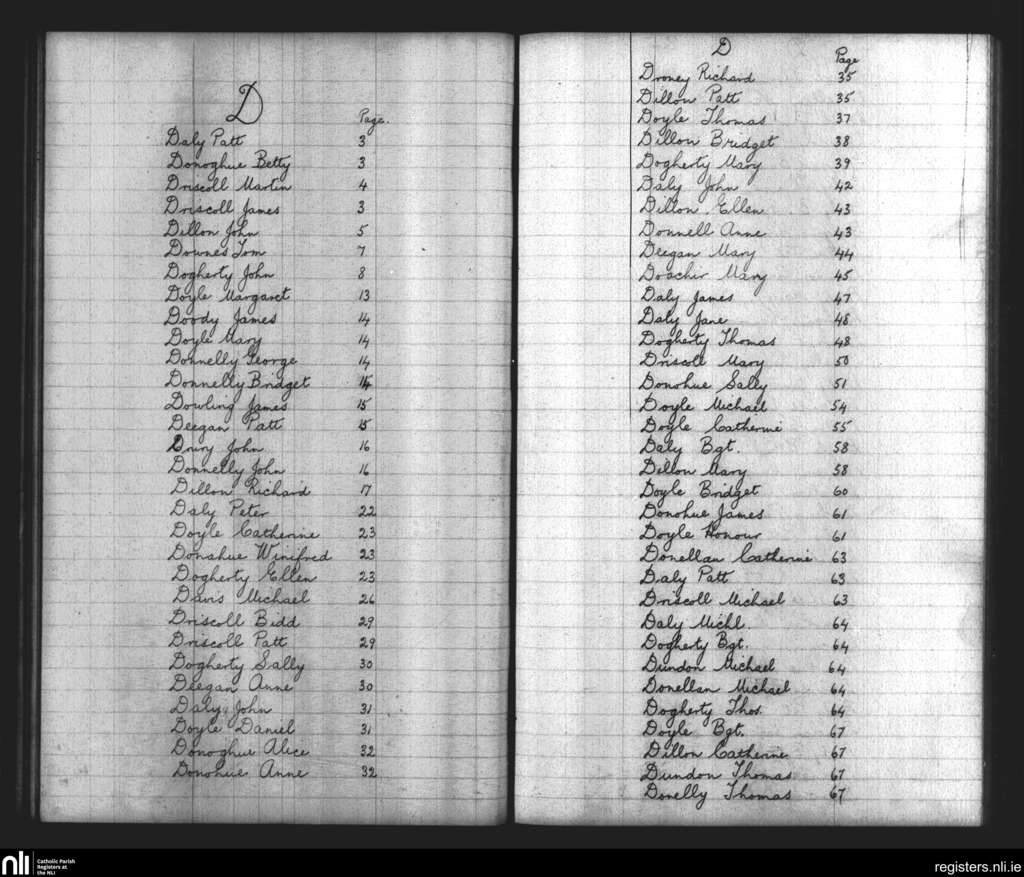 D
Page.
Daly Patt 3
Donoghue Betty 3
Driscoll Martin 4
Driscoll James 3
Dillon John 5
Downes Tom 7
Dogherty John 8
Doyle Margaret 13
Doody James 14
Doyle Mary 14
Donnelly George 14
Donnelly Bridget 14
Dowling James 15
Deegan Patt 15
Drury John 16
Donnelly John 16
Dillon Richard 17
Daly Peter 22
Doyle Catherine 23
Donahue Winifred 23
Dogherty Ellen 23
Davis Michael 26
Driscoll Bidd 29
Driscoll Patt 29
Dogherty Sally 30
Deegan Anne 30
Daly John 31
Doyle Daniel 31
Donoghue Alice 32
Donohue Anne 32
D
Page
Droney Richard 35
Dillon Patt 35
Doyle Thomas 37
Dillon Bridget 38
Dogherty Mary 39
Daly John 42
Dillon Ellen 43
Donnell Anne 43
Deegan Mary 44
Mary 45
Daly James 47
Daly Jane 48
Dogherty Thomas 48
Driscoll Mary 50
Donohue Sally 51
Doyle Michael 54
Doyle Catherine 55
Daly Bgt. 58
Dillon Mary 58
Doyle Bridget 60
Donohue James 61
Doyle Honour 61
Donellan Catherine 63
Daly Patt 63
Driscoll Michael 63
Daly Michl. 64
Dogherty Bgt. 64
Dundon Michael 64
Donellan Michael 64
Dogherty Thos. 64
Doyle Bgt. 67
Dillon Catherine 67
Dundon Thomas 67
Donelly Thomas 67
nli
Catholic Parish
Registers at
the NLI
registers.nli.ie